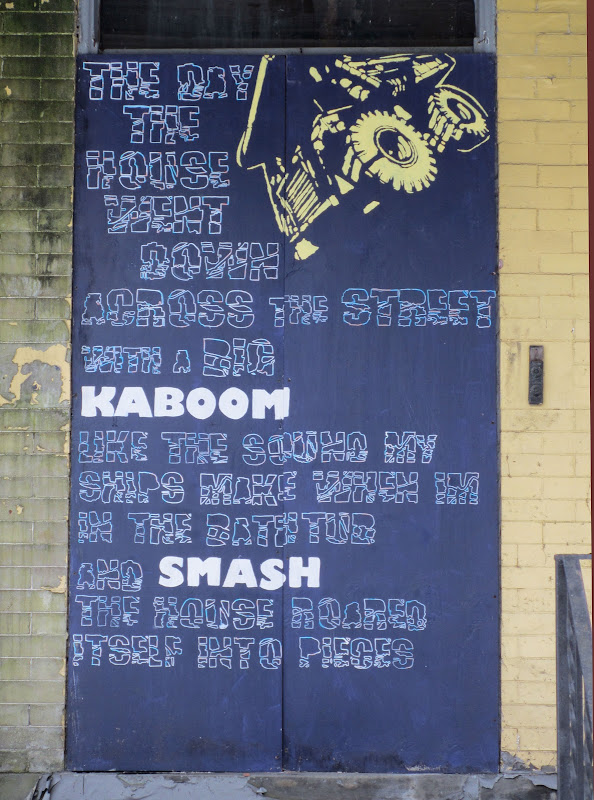 THE DAY
THE
HOUSE
WENT
DOWN
ACROSS THE STREET
WITH A BIG
KABOOM
LIKE THE SOUND MY
SHIPS MAKE WHEN IM
IN THE BATHTUB
AND SMASH
THE HOUSE ROARED
ITSELF INTO PIECES